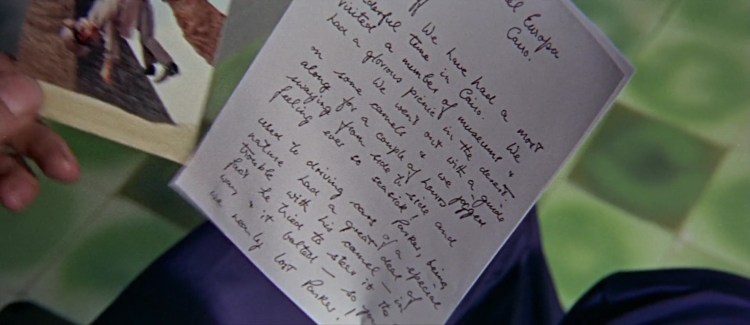 Europa
Cairo.
We have had a most
time in Cairo. We
visited a number of museums &
had a glorious picnic in the desert
We went out with a guide
on some camels & we jogged
along for a couple of hours
swaying from side to side and
feeling ever so seasick!
Parker, being
used to driving cars of a special
nature had a great deal of
trouble with his camel – in
fact he tried to steer it the
& it bolted – so
we nearly lost Parker!